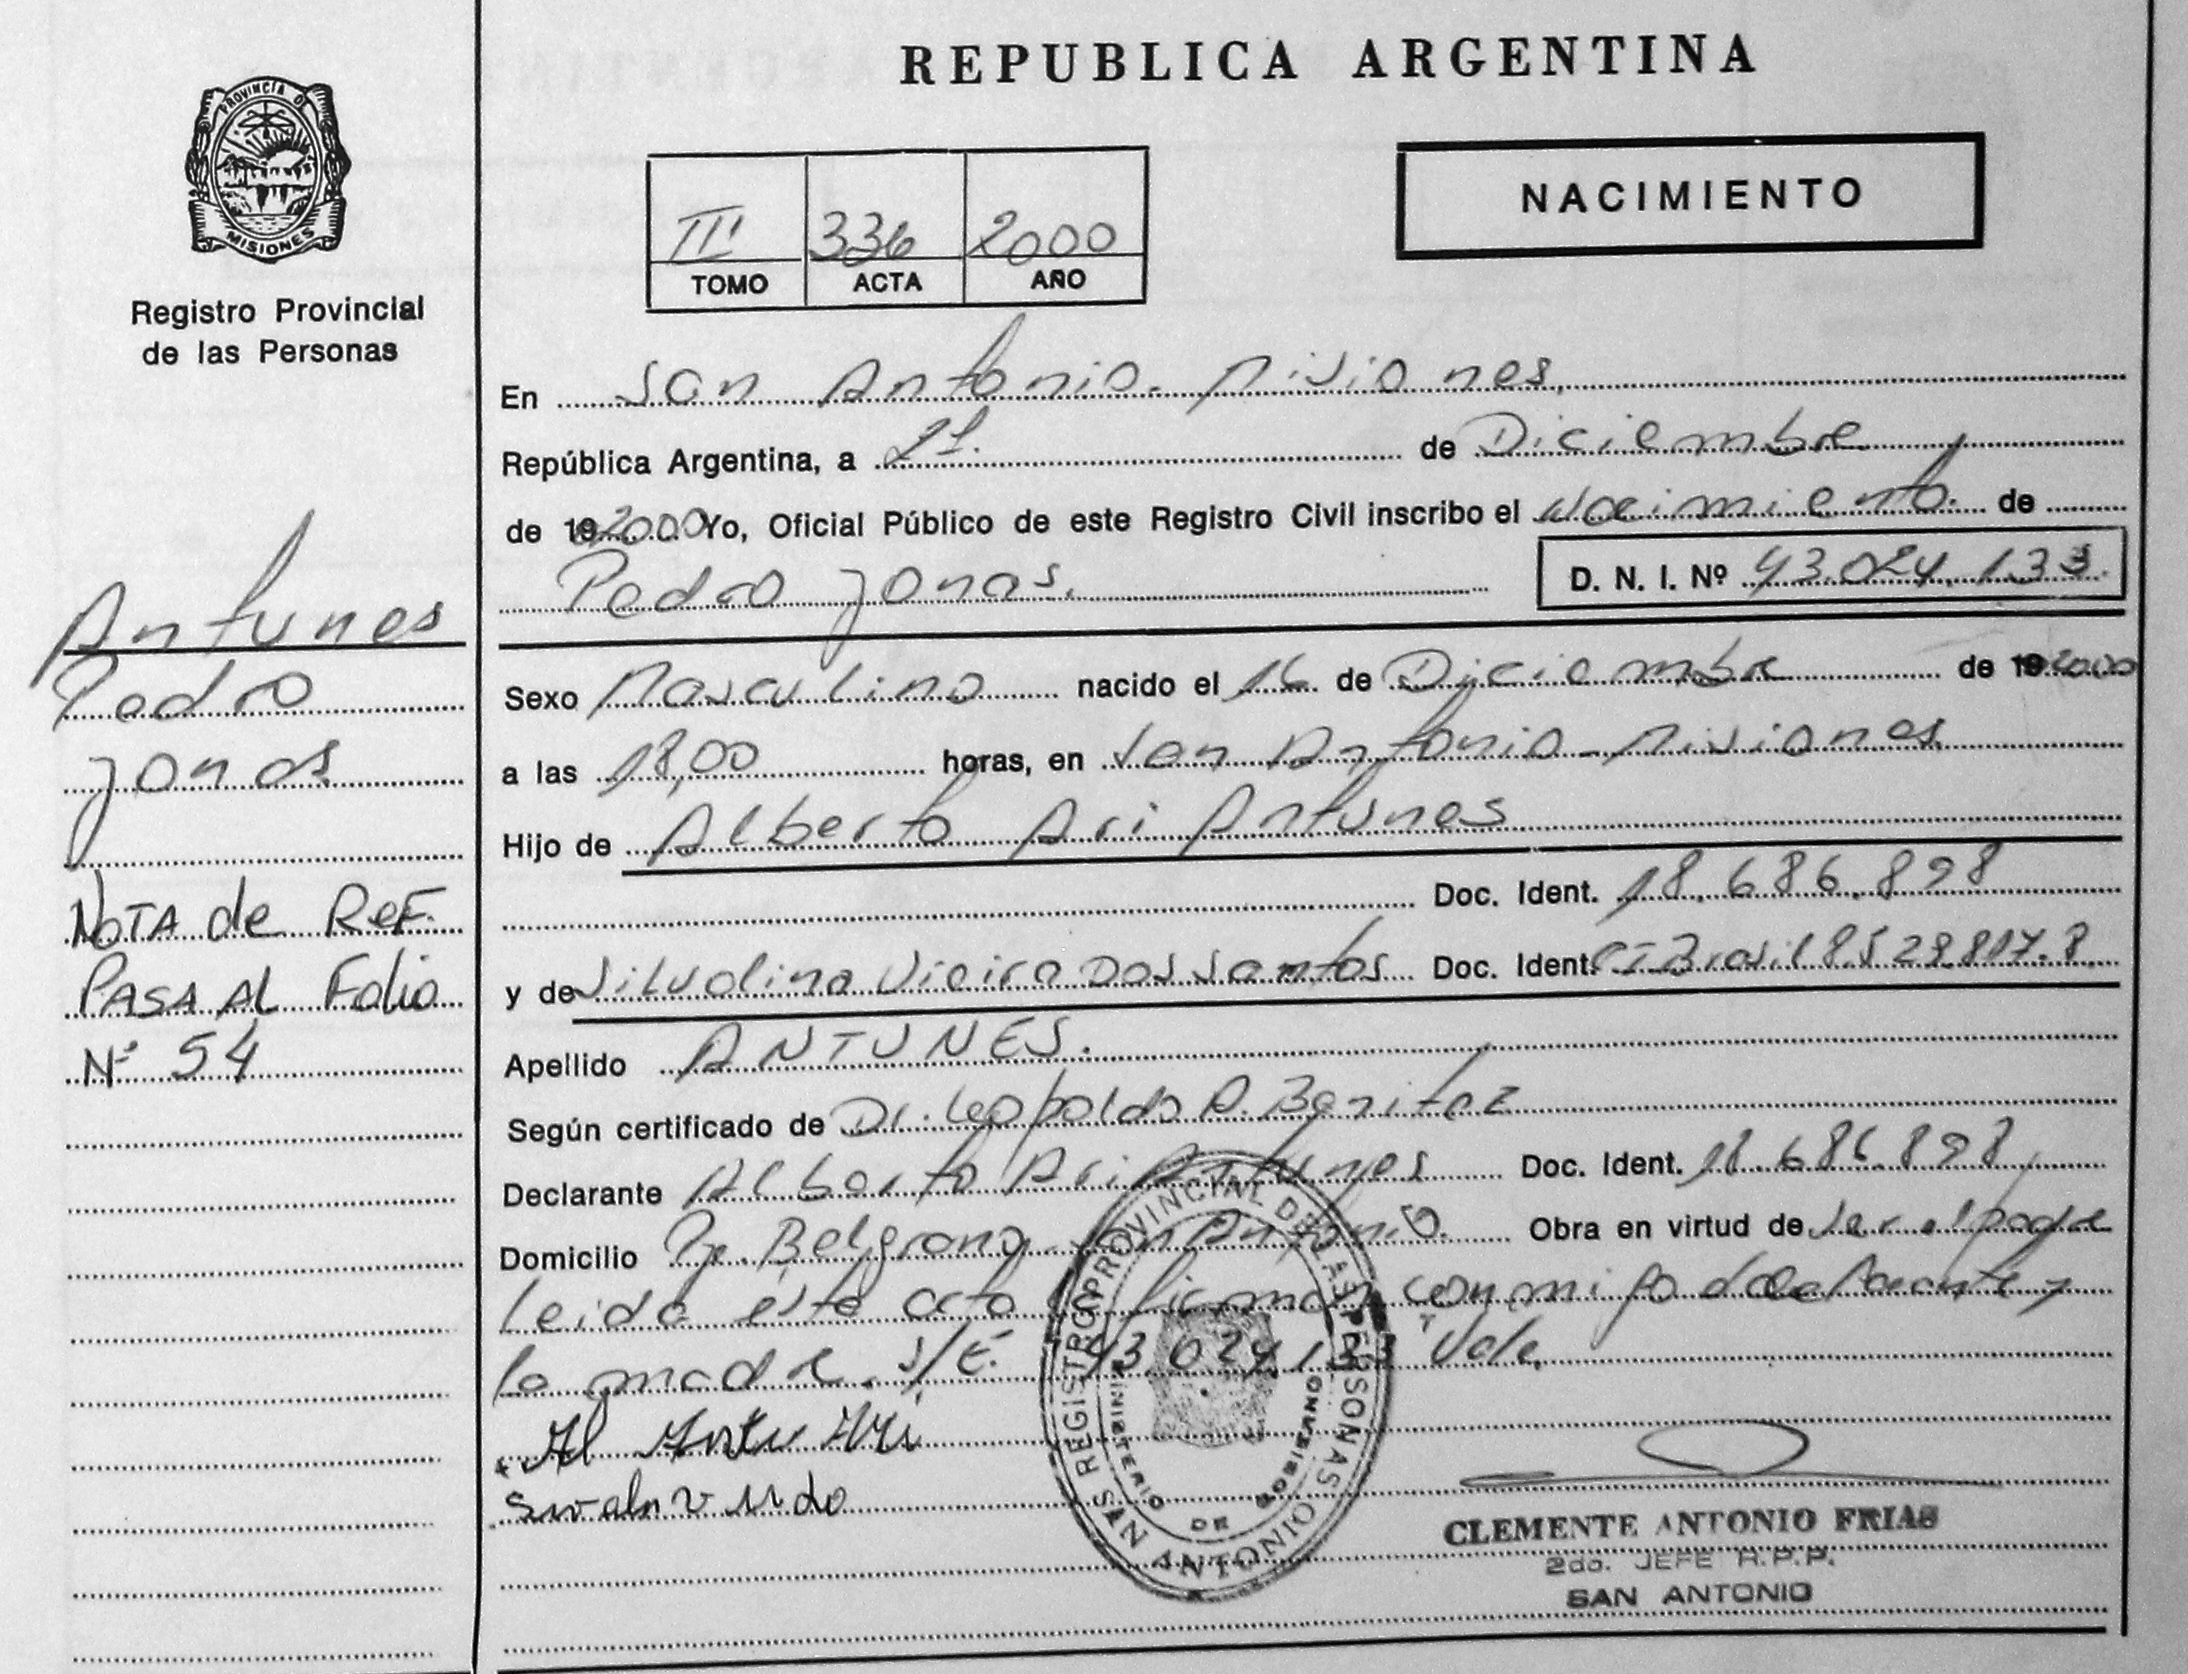 REPUBLICA ARGENTINA
PROVINCIA DE
MISIONES
Registro Provincial
de las Personas
NACIMIENTO
III 336 2000
TOMO ACTA AÑO
En San Antonio - Misiones,
República Argentina, a 21 de Diciembre
de 19 2000 Yo, Oficial Público de este Registro Civil inscribo el Nacimiento de
Pedro Jonas. D. N. I. Nº 43.024.133.
Antunes
Pedro
Jonas
Nota de Ref.
Pasa al Folio
Nº 54
Sexo Masculino nacido el 16 de Diciembre de 19 2000
a las 18,00 horas, en San Antonio - Misiones
Hijo de Alberto Ari Antunes
Doc. Ident. 18.686.898
y de Vieira Dos Santos Doc. Ident. CI Brasil 8.529.817.8
Apellido ANTUNES.
Según certificado de Dr. Leopoldo A. Benitez
Declarante Alberto Ari Antunes Doc. Ident. 18.686.898
Domicilio Pje. Belgrano San Antonio. Obra en virtud de Ser el padre
Leida esta acta la firman conmigo declarante y
la madre. S/E. "43.024.133" Vale.
REGISTRO PROVINCIAL DE LAS PERSONAS
MINISTERIO DE GOBIERNO
SAN ANTONIO
CLEMENTE ANTONIO FRIAS
2do. JEFE R.P.P.
SAN ANTONIO